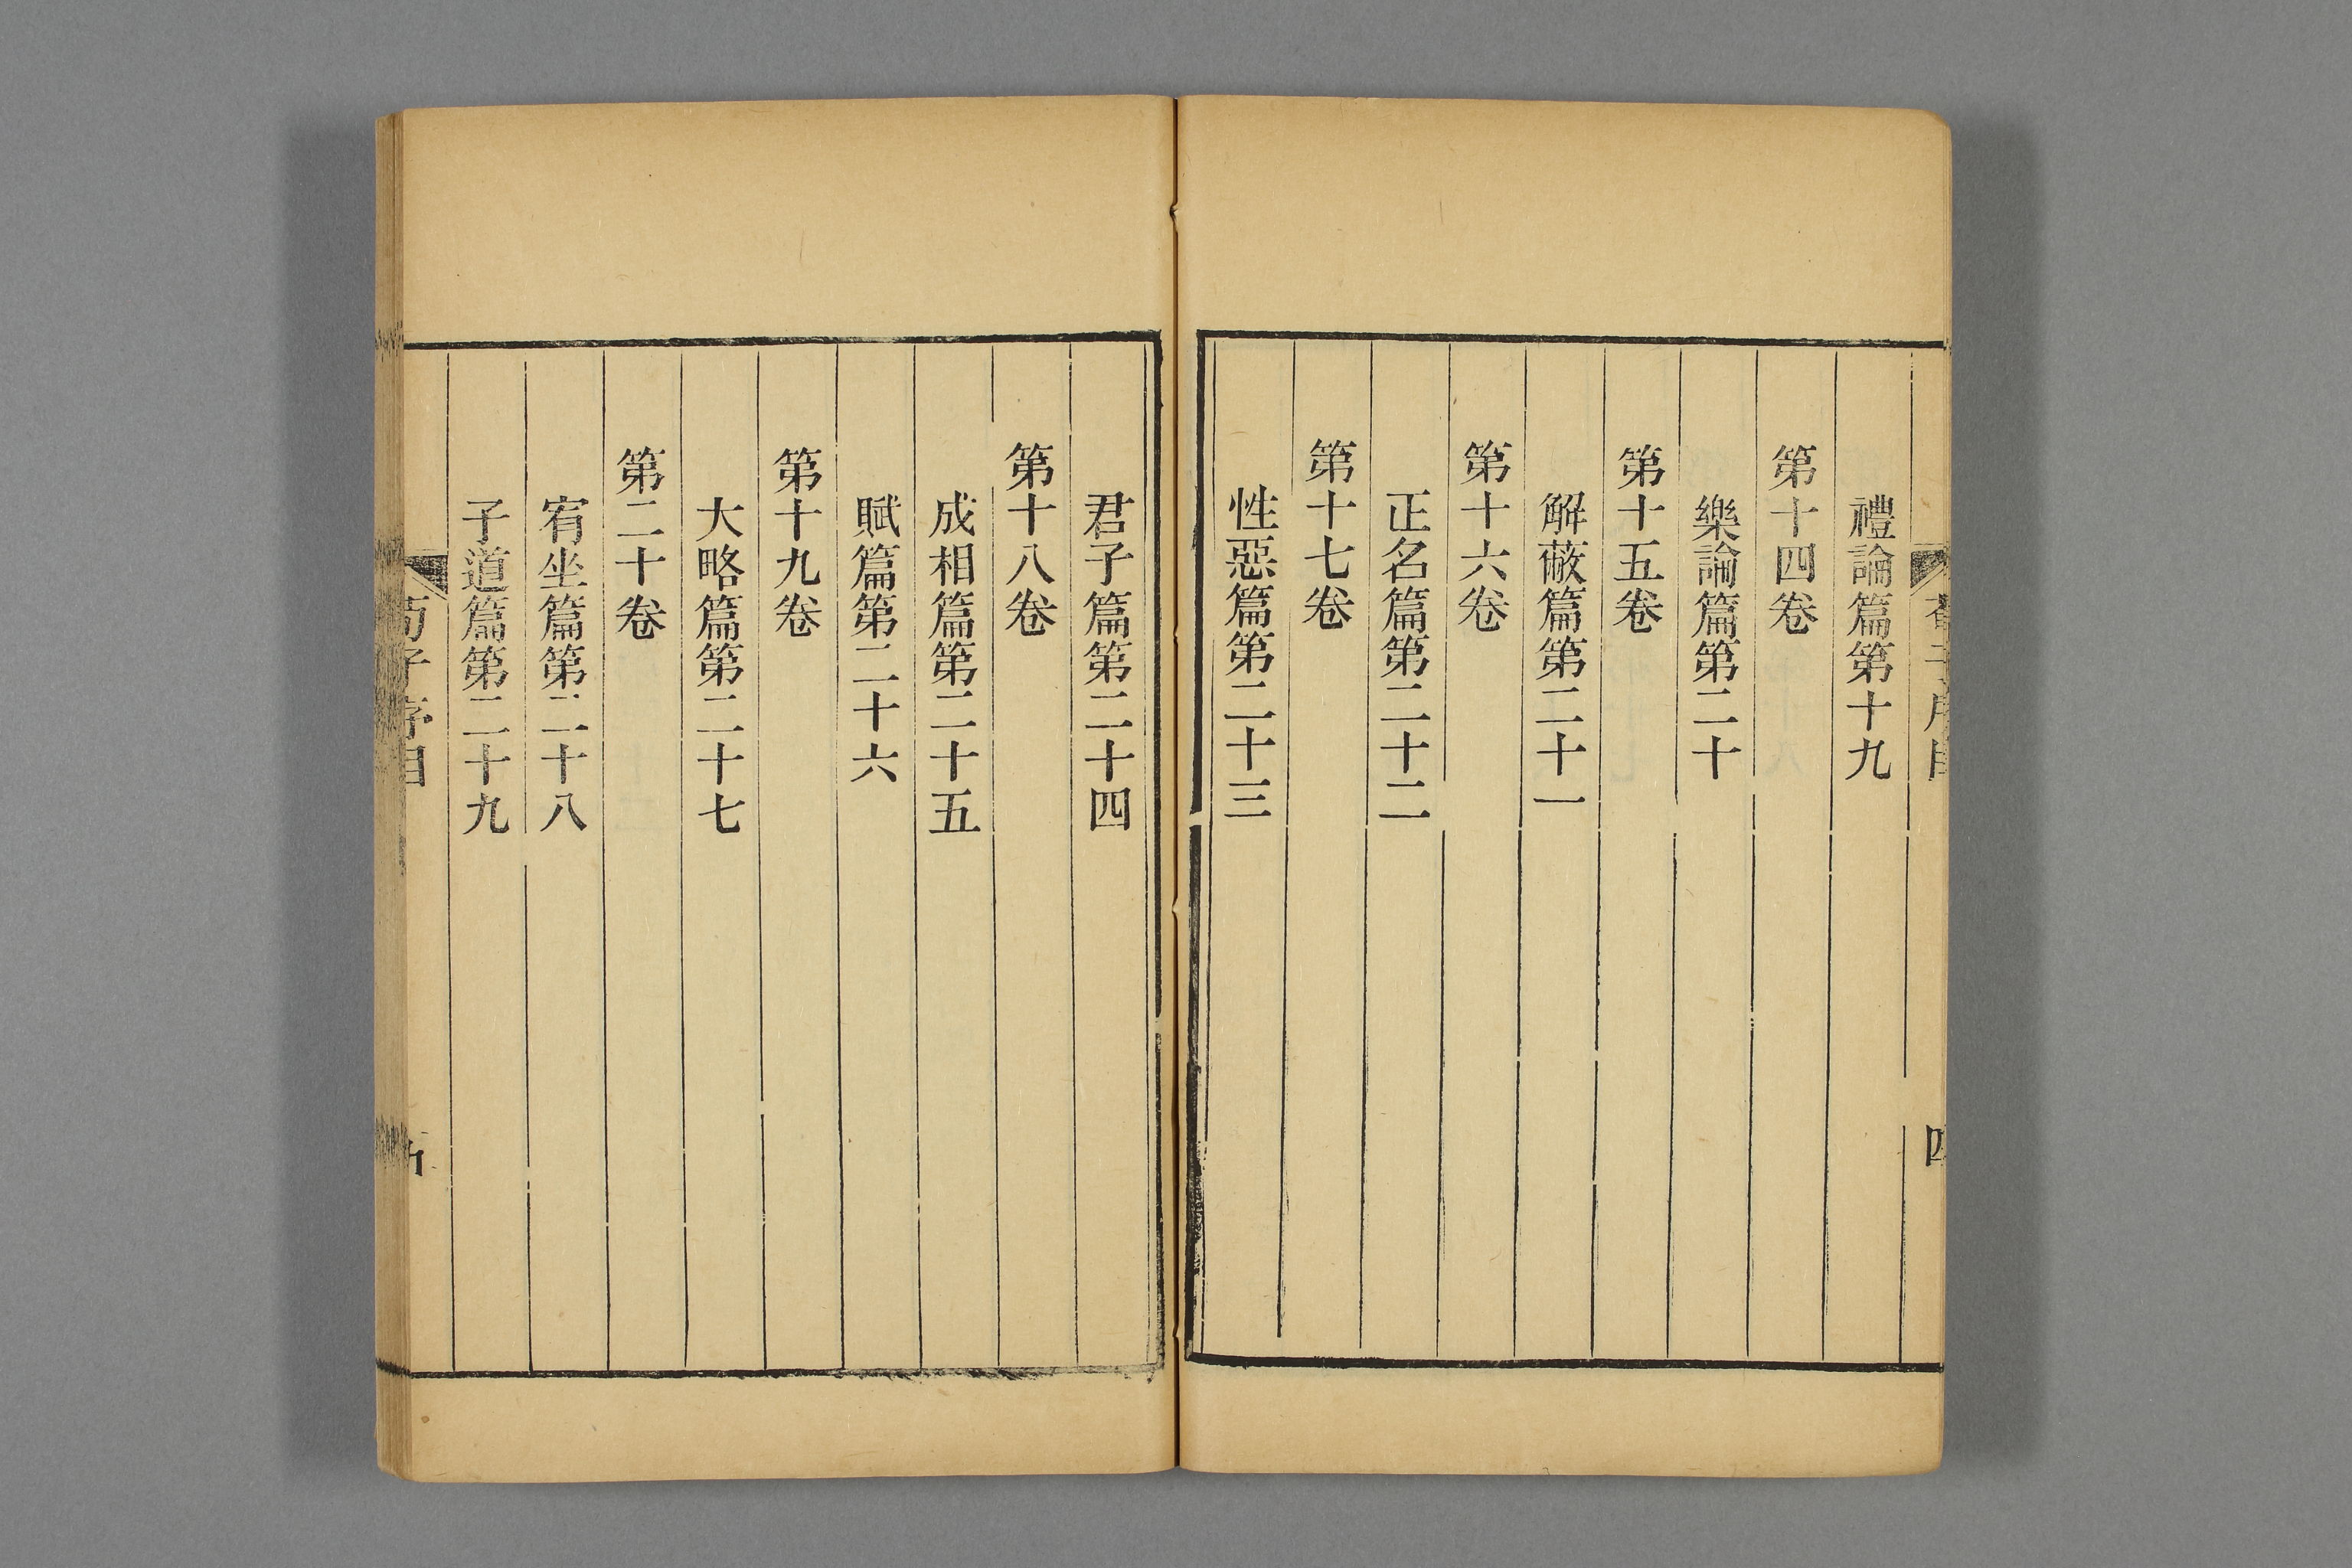 荀子序目
四
禮論篇第十九
第十四卷
樂論篇第二十
第十五卷
解蔽篇第二十一
第十六卷
正名篇第二十二
第十七卷
性惡篇第二十三
君子篇第二十四
第十八卷
成相篇第二十五
賦篇第二十六
第十九卷
大略篇第二十七
第二十卷
宥坐篇第二十八
子道篇第二十九
荀子序目